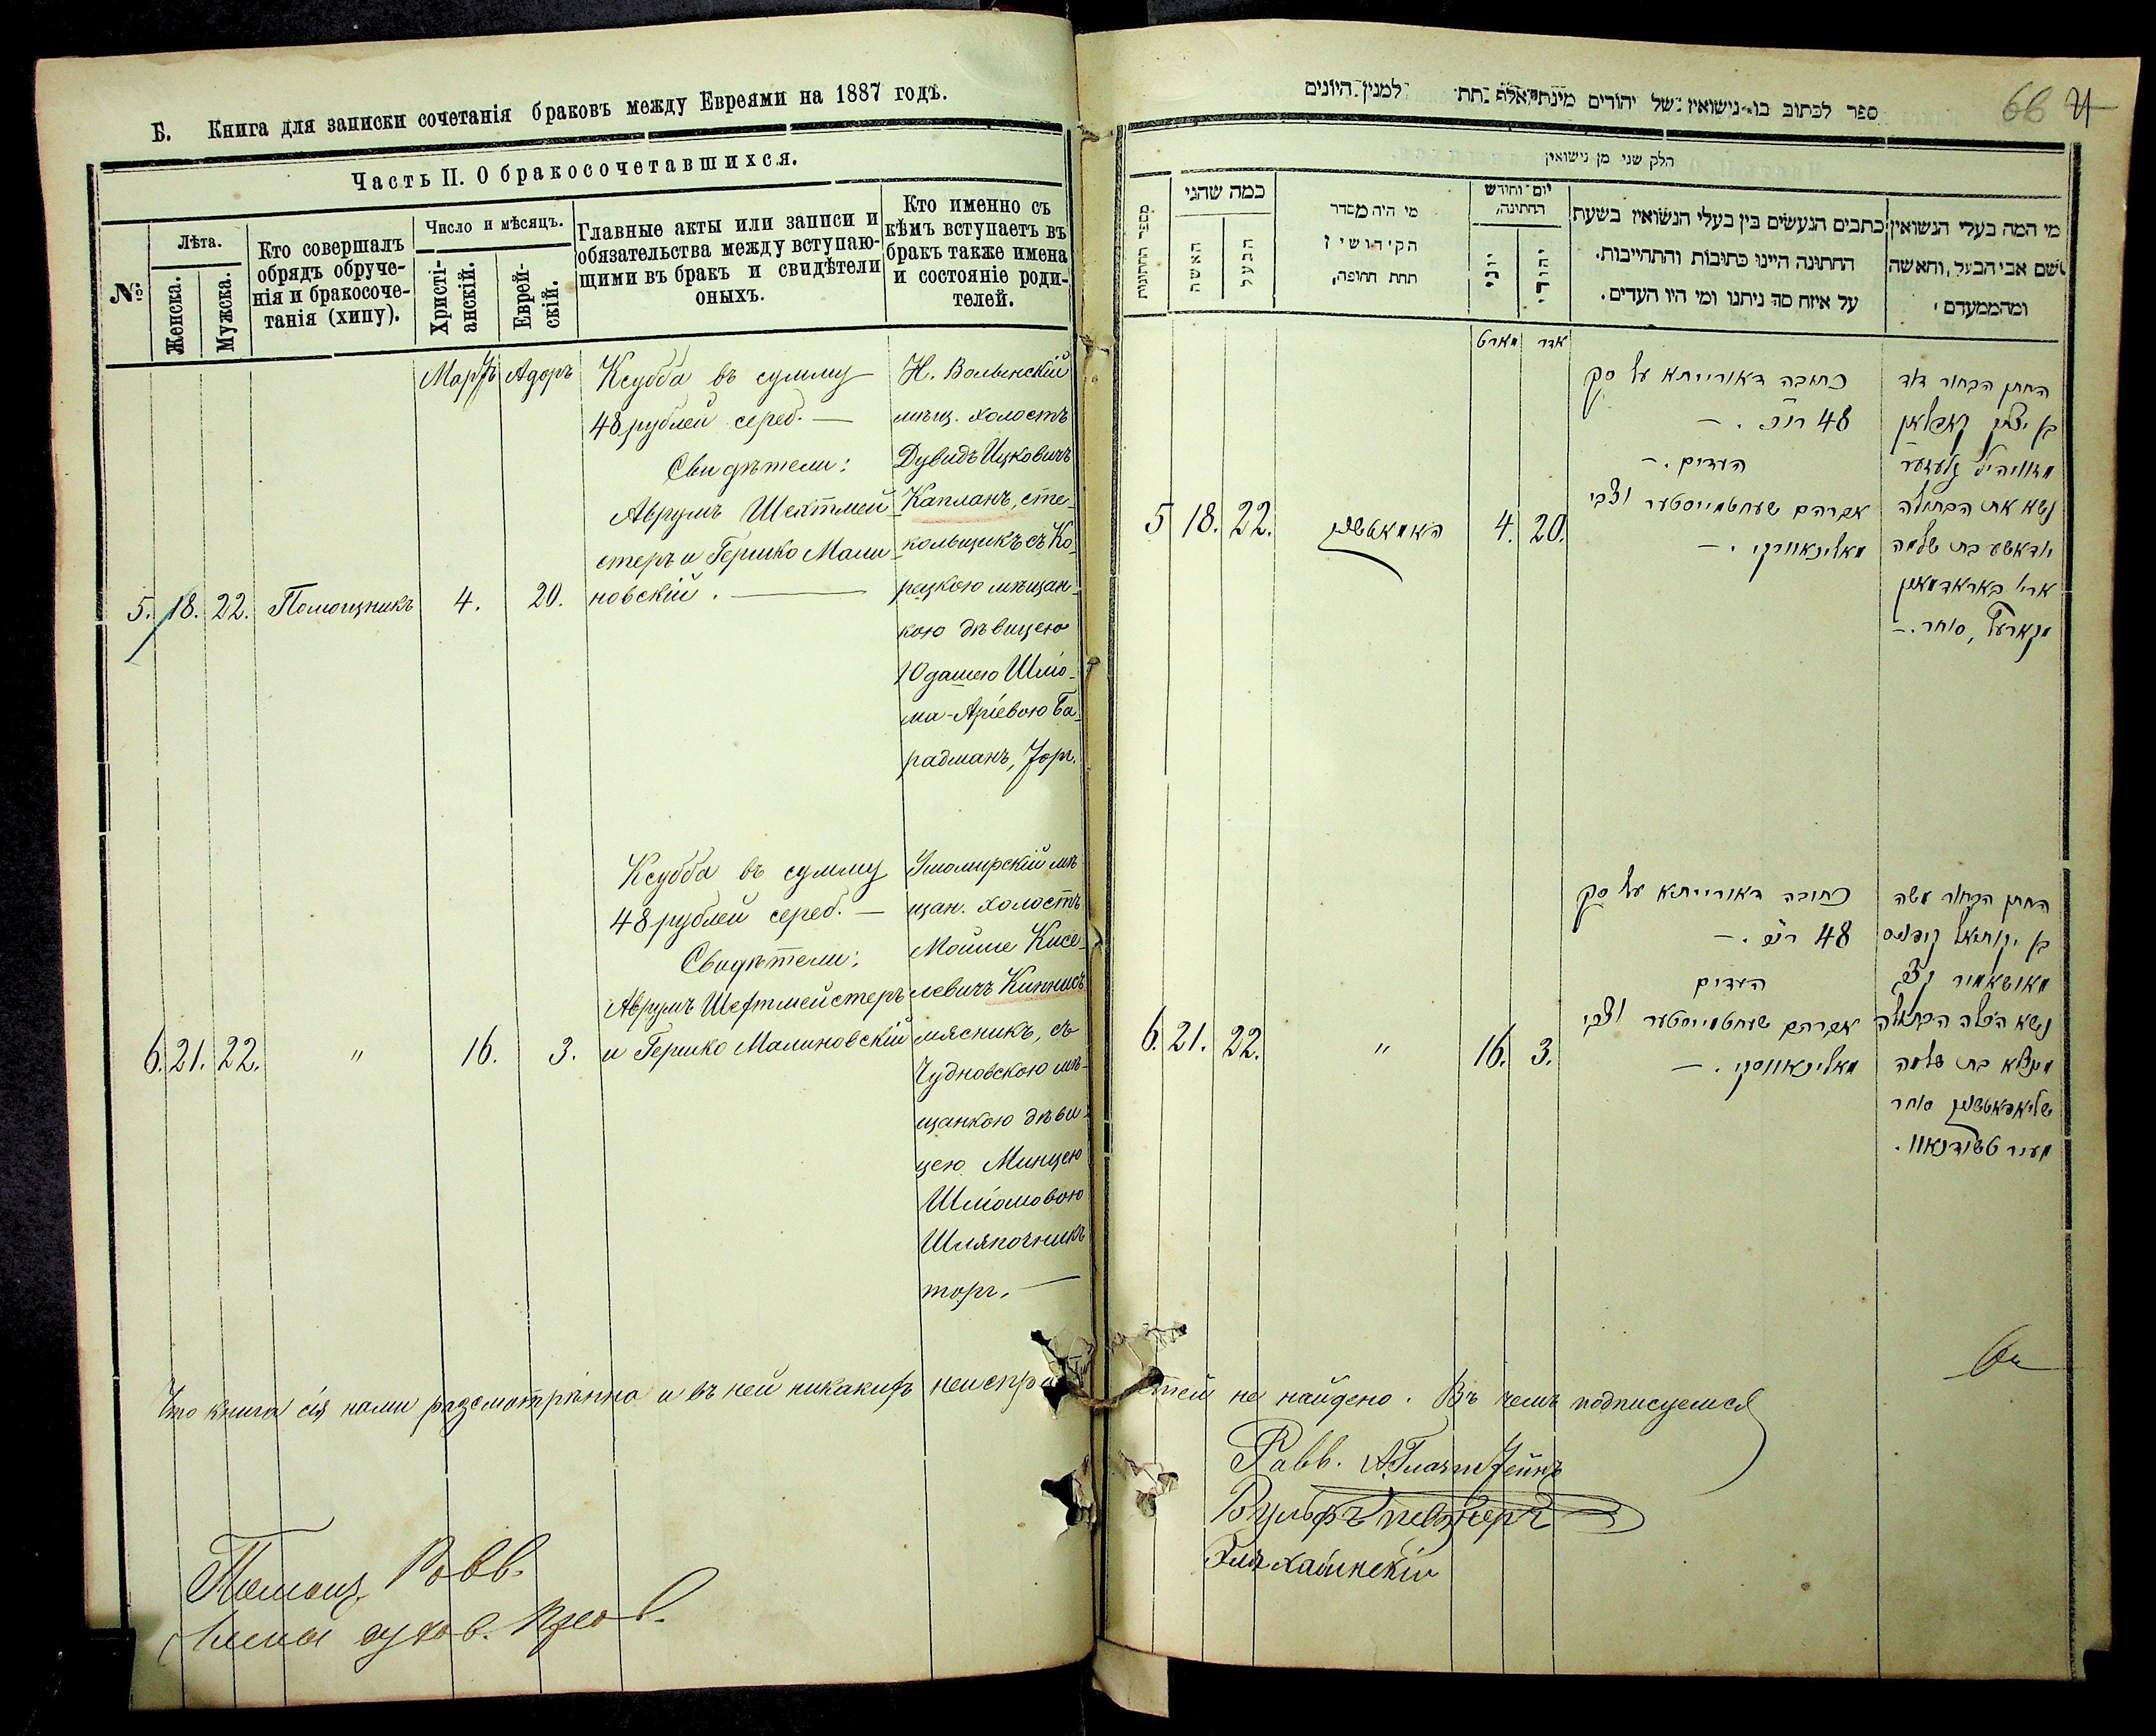 Б. Книга для записки сочетанія браковъ между Евреями на 1887 годъ.
Часть II. О бракосочетавшихся.
№
Лѣта.
Женска.
Мужска.
Кто совершалъ
обрядъ обруче-
нія и бракосоче-
танія (хипу).
Число и мѣсяцъ.
Христі-
анскій.
Еврей-
скій.
Главные акты или записи и
обязательства между вступаю-
щими въ бракъ и свидѣтели
оныхъ.
Кто именно съ
кѣмъ вступаетъ въ
бракъ также имена
и состояніе роди-
телей.
Мартъ Адоръ
5. 18. 22. Помощникъ 4. 20.
Ксубба въ сумму
48 рублей сереб. —
Свидѣтели:
Аврумъ Шехтмей-
стеръ и Гершко Мали-
новскій. —
Н. Волынскій
мѣщ. холостъ
Дувидъ Ицковичъ
Капланъ, сте-
кольщикъ съ Ко-
рецкою мѣщан-
кою дѣвицею
Юдашею Шліо-
ма-Аріевою Ба-
радманъ, Торг.
6. 21. 22. " 16. 3.
Ксубба въ сумму
48 рублей сереб. —
Свидѣтели:
Аврумъ Шехтмейстеръ
и Гершко Малиновскій
Ушомирскій мѣ-
щан. холостъ
Мойше Кисе-
левичъ Кипнисъ
мясникъ, съ
Чудновскою мѣ-
щанкою дѣви-
цею Минцею
Шліомовою
Шляпочникъ
торг. —
Что книга сія нами разсмотрѣнна и въ ней никакихъ неиспра
Помощ. Равв.
Члены духов. прав.
ספר לכתוב בו נישואין של יהודים משנת אלף תת למנין היונים
66
חלק שני מן נישואין
מספר החתונות
כמה שהגי
האשה
הבעל
מי היה מסדר
הקידושין
תחת חחופה.
יום וחודש
החתונה,
יוני
יהודי
כתבים הנעשים בין בעלי הנשואין בשעת
החתונה היינו כתובות והתחייבות.
על איזה סך ניתנו ומי היו העדים.
מי המה בעלי הנשואין
ושם אבי הבעל, והאשה
ומהממעדם
מארט אדר
5 18. 22. 4. 20.
כתובה דאורייתא על סך
48 רו״כ. —
העדים. —
אברהם שעחטמייסטער וצבי
מאלינאווסקי. —
החתן הבחור דוד
בן יצחק קאפלאן
נשא את הבתולה
יודאשע בת שלמה
ארי׳ באראדמאן
סוחר. —
6. 21. 22. " 16. 3.
כתובה דאורייתא על סך
48 רו״כ. —
העדים
אברהם שעחטמייסטער וצבי
מאלינאווסקי. —
החתן הבחור משה
בן יקותיאל קיפניס
מאושאמיר קצב
נשא הכלה הבתולה
מינציא בת שלמה
שליאפאטשניק סוחר
מעיר טשודנאוו.
стей не найдено. Въ чемъ подписуемся
Равв. А. Глазштейнъ
Вульфъ Певзнеръ
Хаимскій